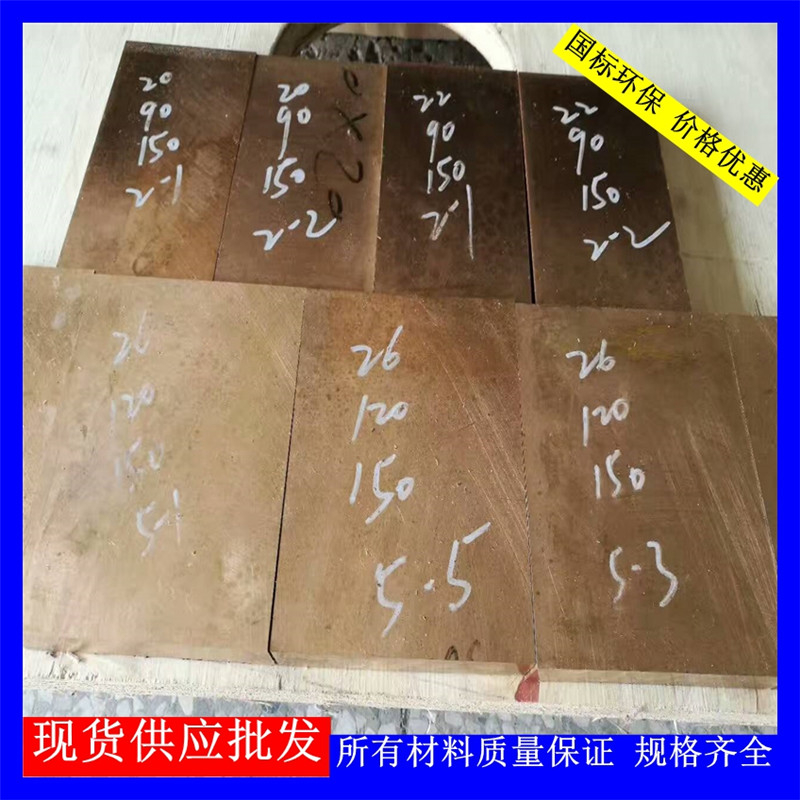 国标环保 价格优惠
20
90
150
2-1
20
90
150
2-2
22
90
150
2-1
22
90
150
2-2
26
120
150
5-1
26
120
150
5-5
26
120
150
5-3
现货供应批发
所有材料质量保证 规格齐全